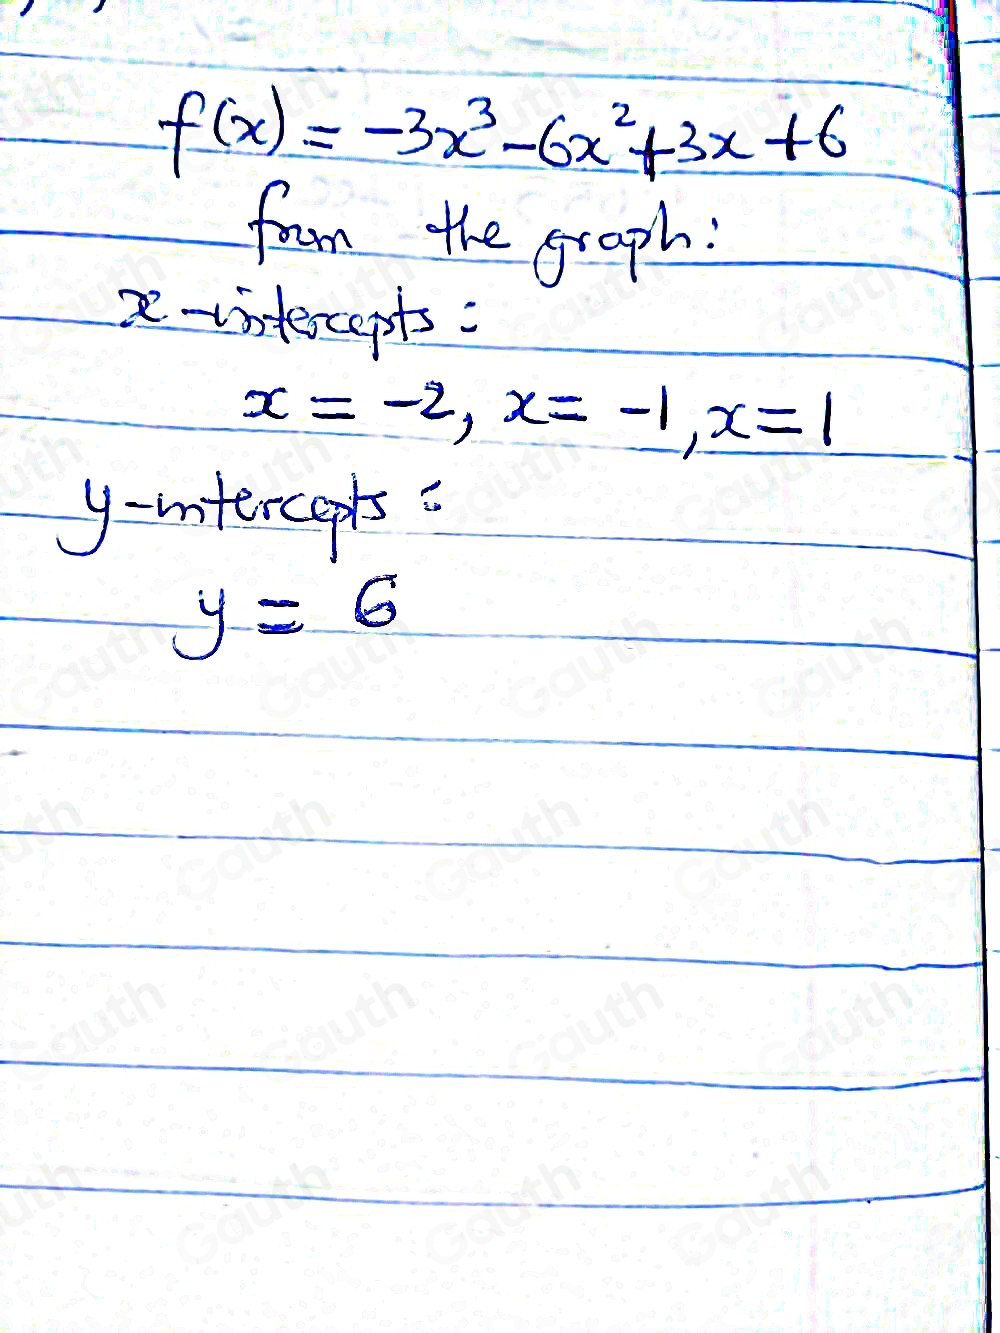 f(x) = -3x³ - 6x² + 3x + 6
from the graph:
x-intercepts:
x = -2, x = -1, x = 1
y-intercepts:
y = 6